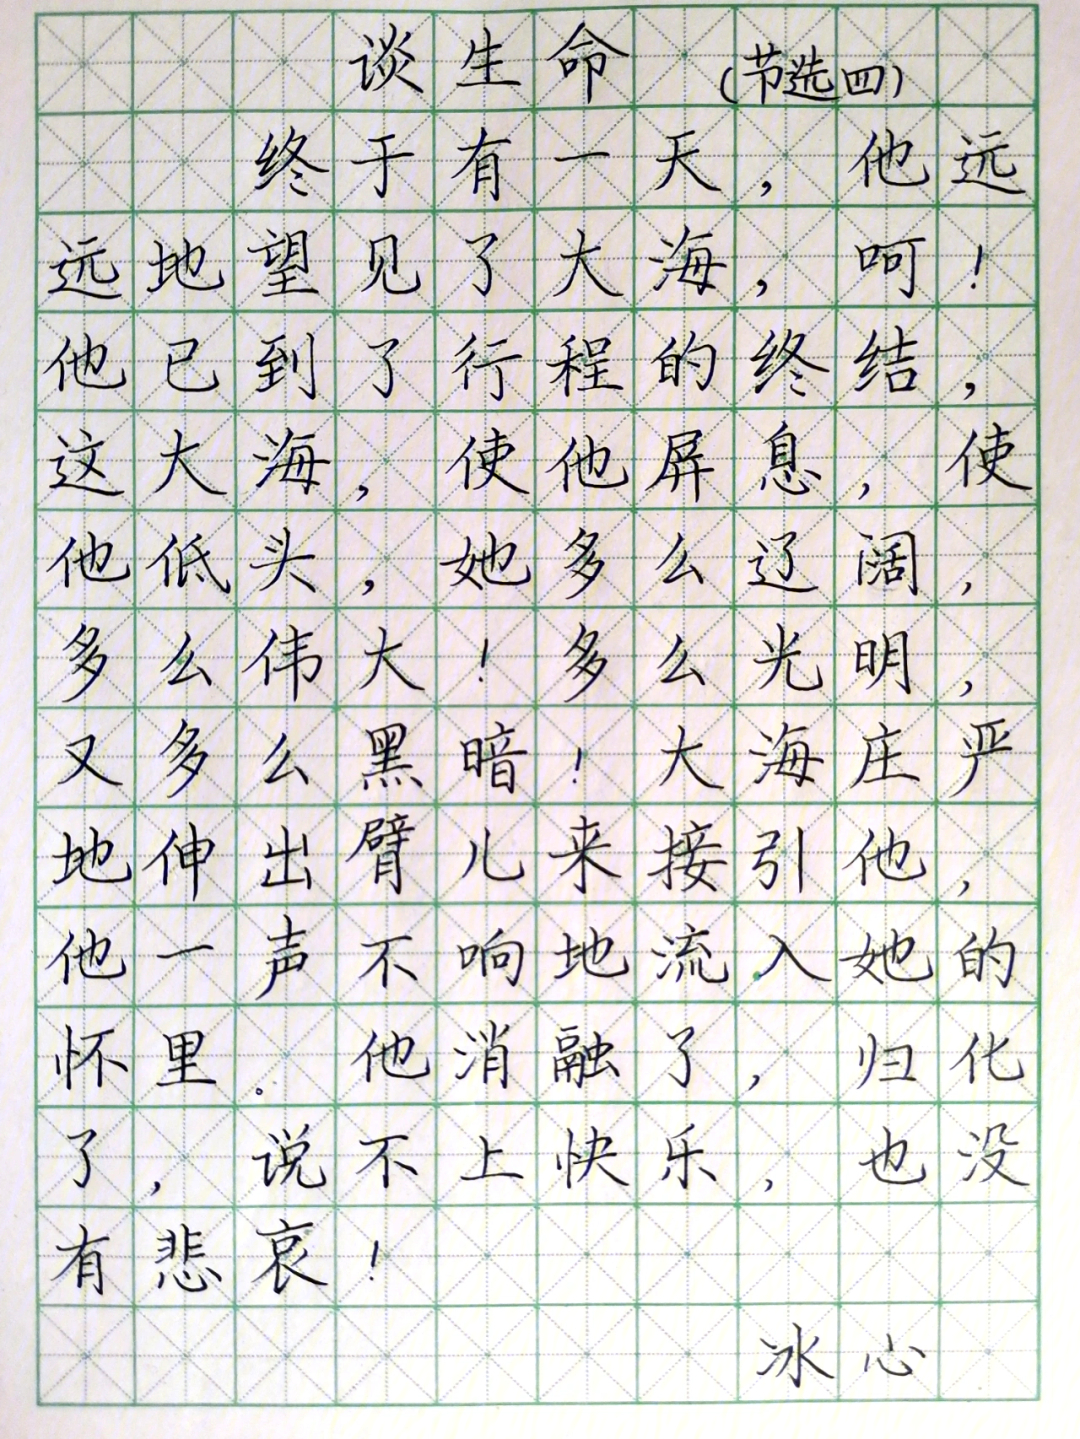 谈生命 (节选四)
终于有一天，他远
远地望见了大海，呵！
他已到了行程的终结，
这大海，使他屏息，使
他低头，她多么辽阔，
多么伟大！多么光明，
又多么黑暗！大海庄严
地伸出臂儿来接引他，
他一声不响地流入她的
怀里。他消融了，归化
了，说不上快乐，也没
有悲哀！
冰心